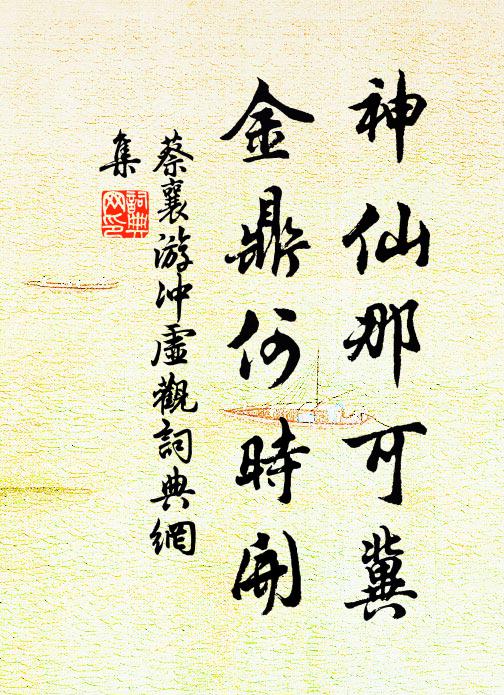 神仙那可冀
金鼎何時開
蔡襄游冲虛觀詞典網
集
詞典
网印